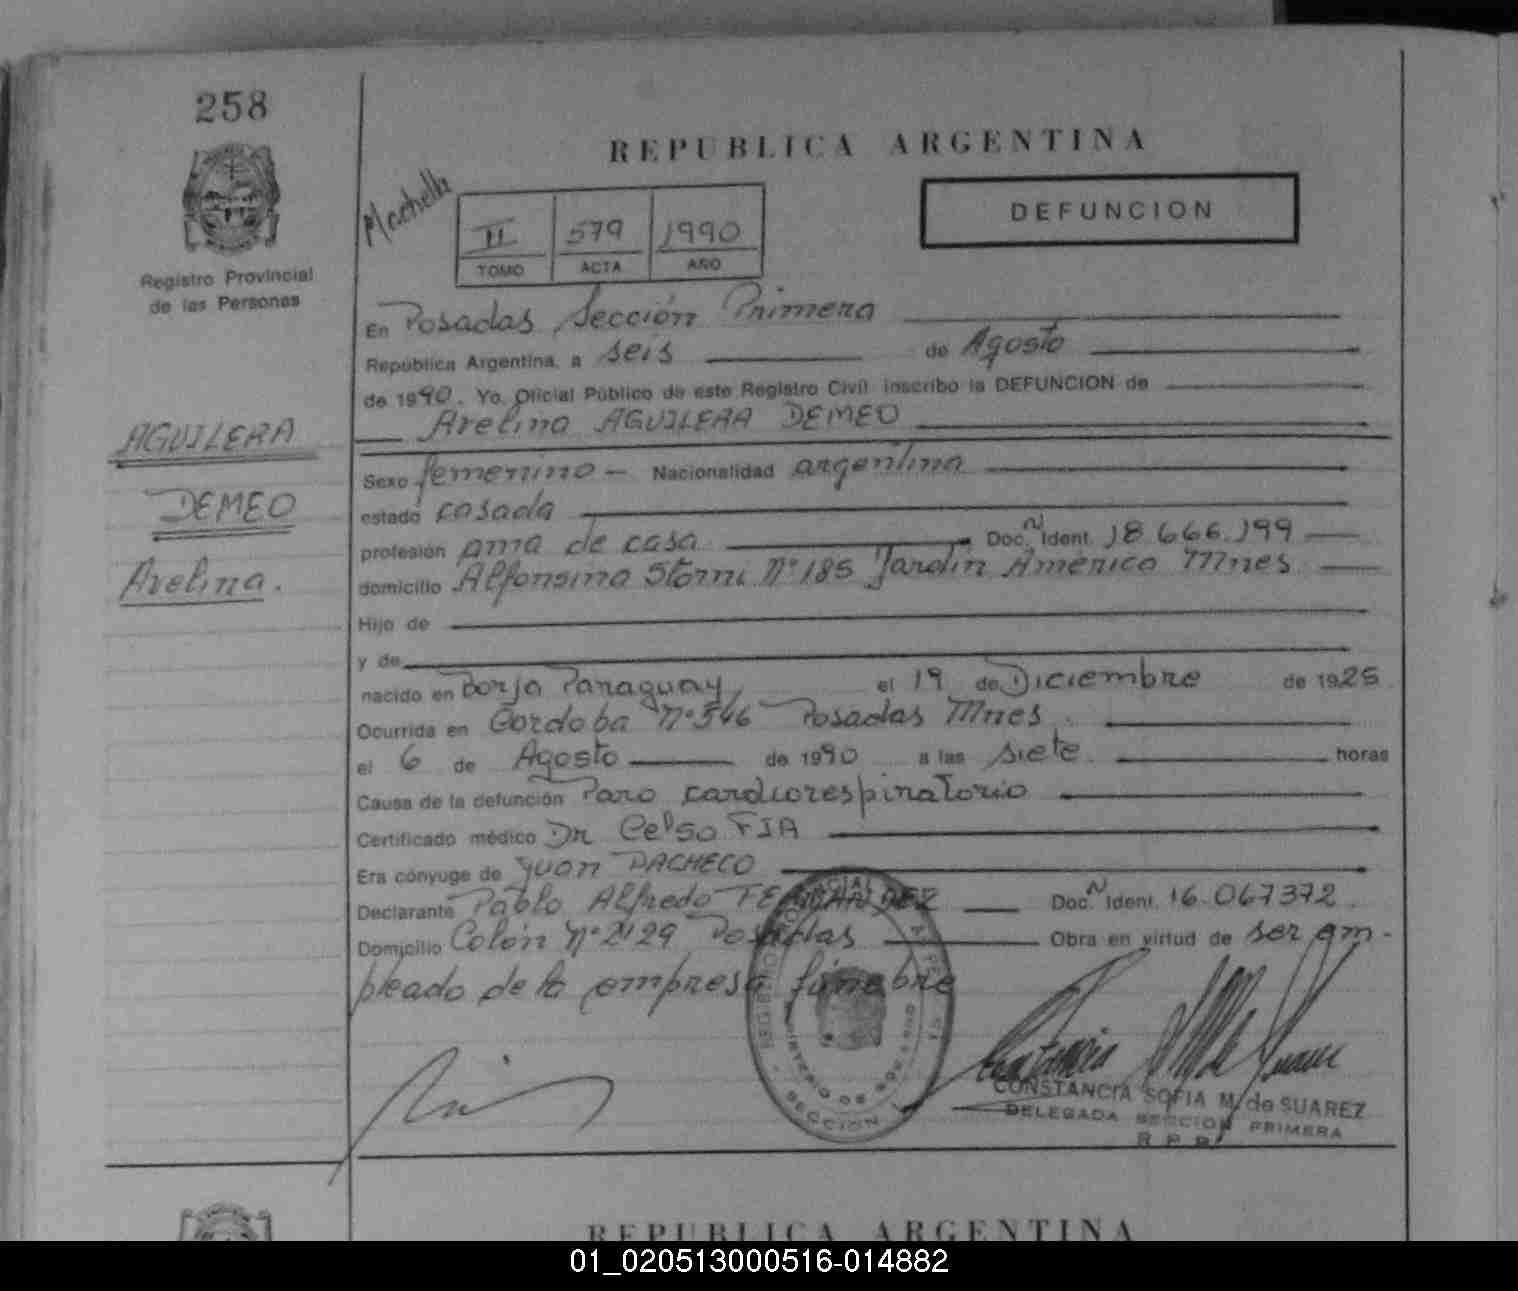 258
REPUBLICA ARGENTINA
Registro Provincial
de las Personas
II 579 1990
TOMO ACTA AÑO
DEFUNCION
AGUILERA
DEMEO
Avelina.
En Posadas Sección Primera
República Argentina, a seis de Agosto
de 1990. Yo, Oficial Público de este Registro Civil inscribo la DEFUNCION de
Avelina AGUILERA DEMEO
Sexo femenino - Nacionalidad argentina
estado casada
profesión ama de casa Doc. N Ident. 18.666.199
domicilio Alfonsina Storni Nº 185 Jardín América Mnes
Hijo de
y de
nacido en Borja Paraguay, el 19 de Diciembre de 1925
Ocurrida en Cordoba Nº 546 Posadas Mnes.
el 6 de Agosto de 1990 a las siete horas
Causa de la defunción Paro cardiorespiratorio
Certificado médico Dr Celso FIA
Era cónyuge de Juan PACHECO
Declarante Pablo Alfredo FERNANDEZ Doc. N Ident. 16.067372.
Domicilio Colón Nº 2129 Posadas Obra en virtud de ser em-
pleado de la empresa fúnebre
CONSTANCIA SOFIA M. de SUAREZ
DELEGADA SECCION PRIMERA
R.P.P.
REPUBLICA ARGENTINA
01_020513000516-014882